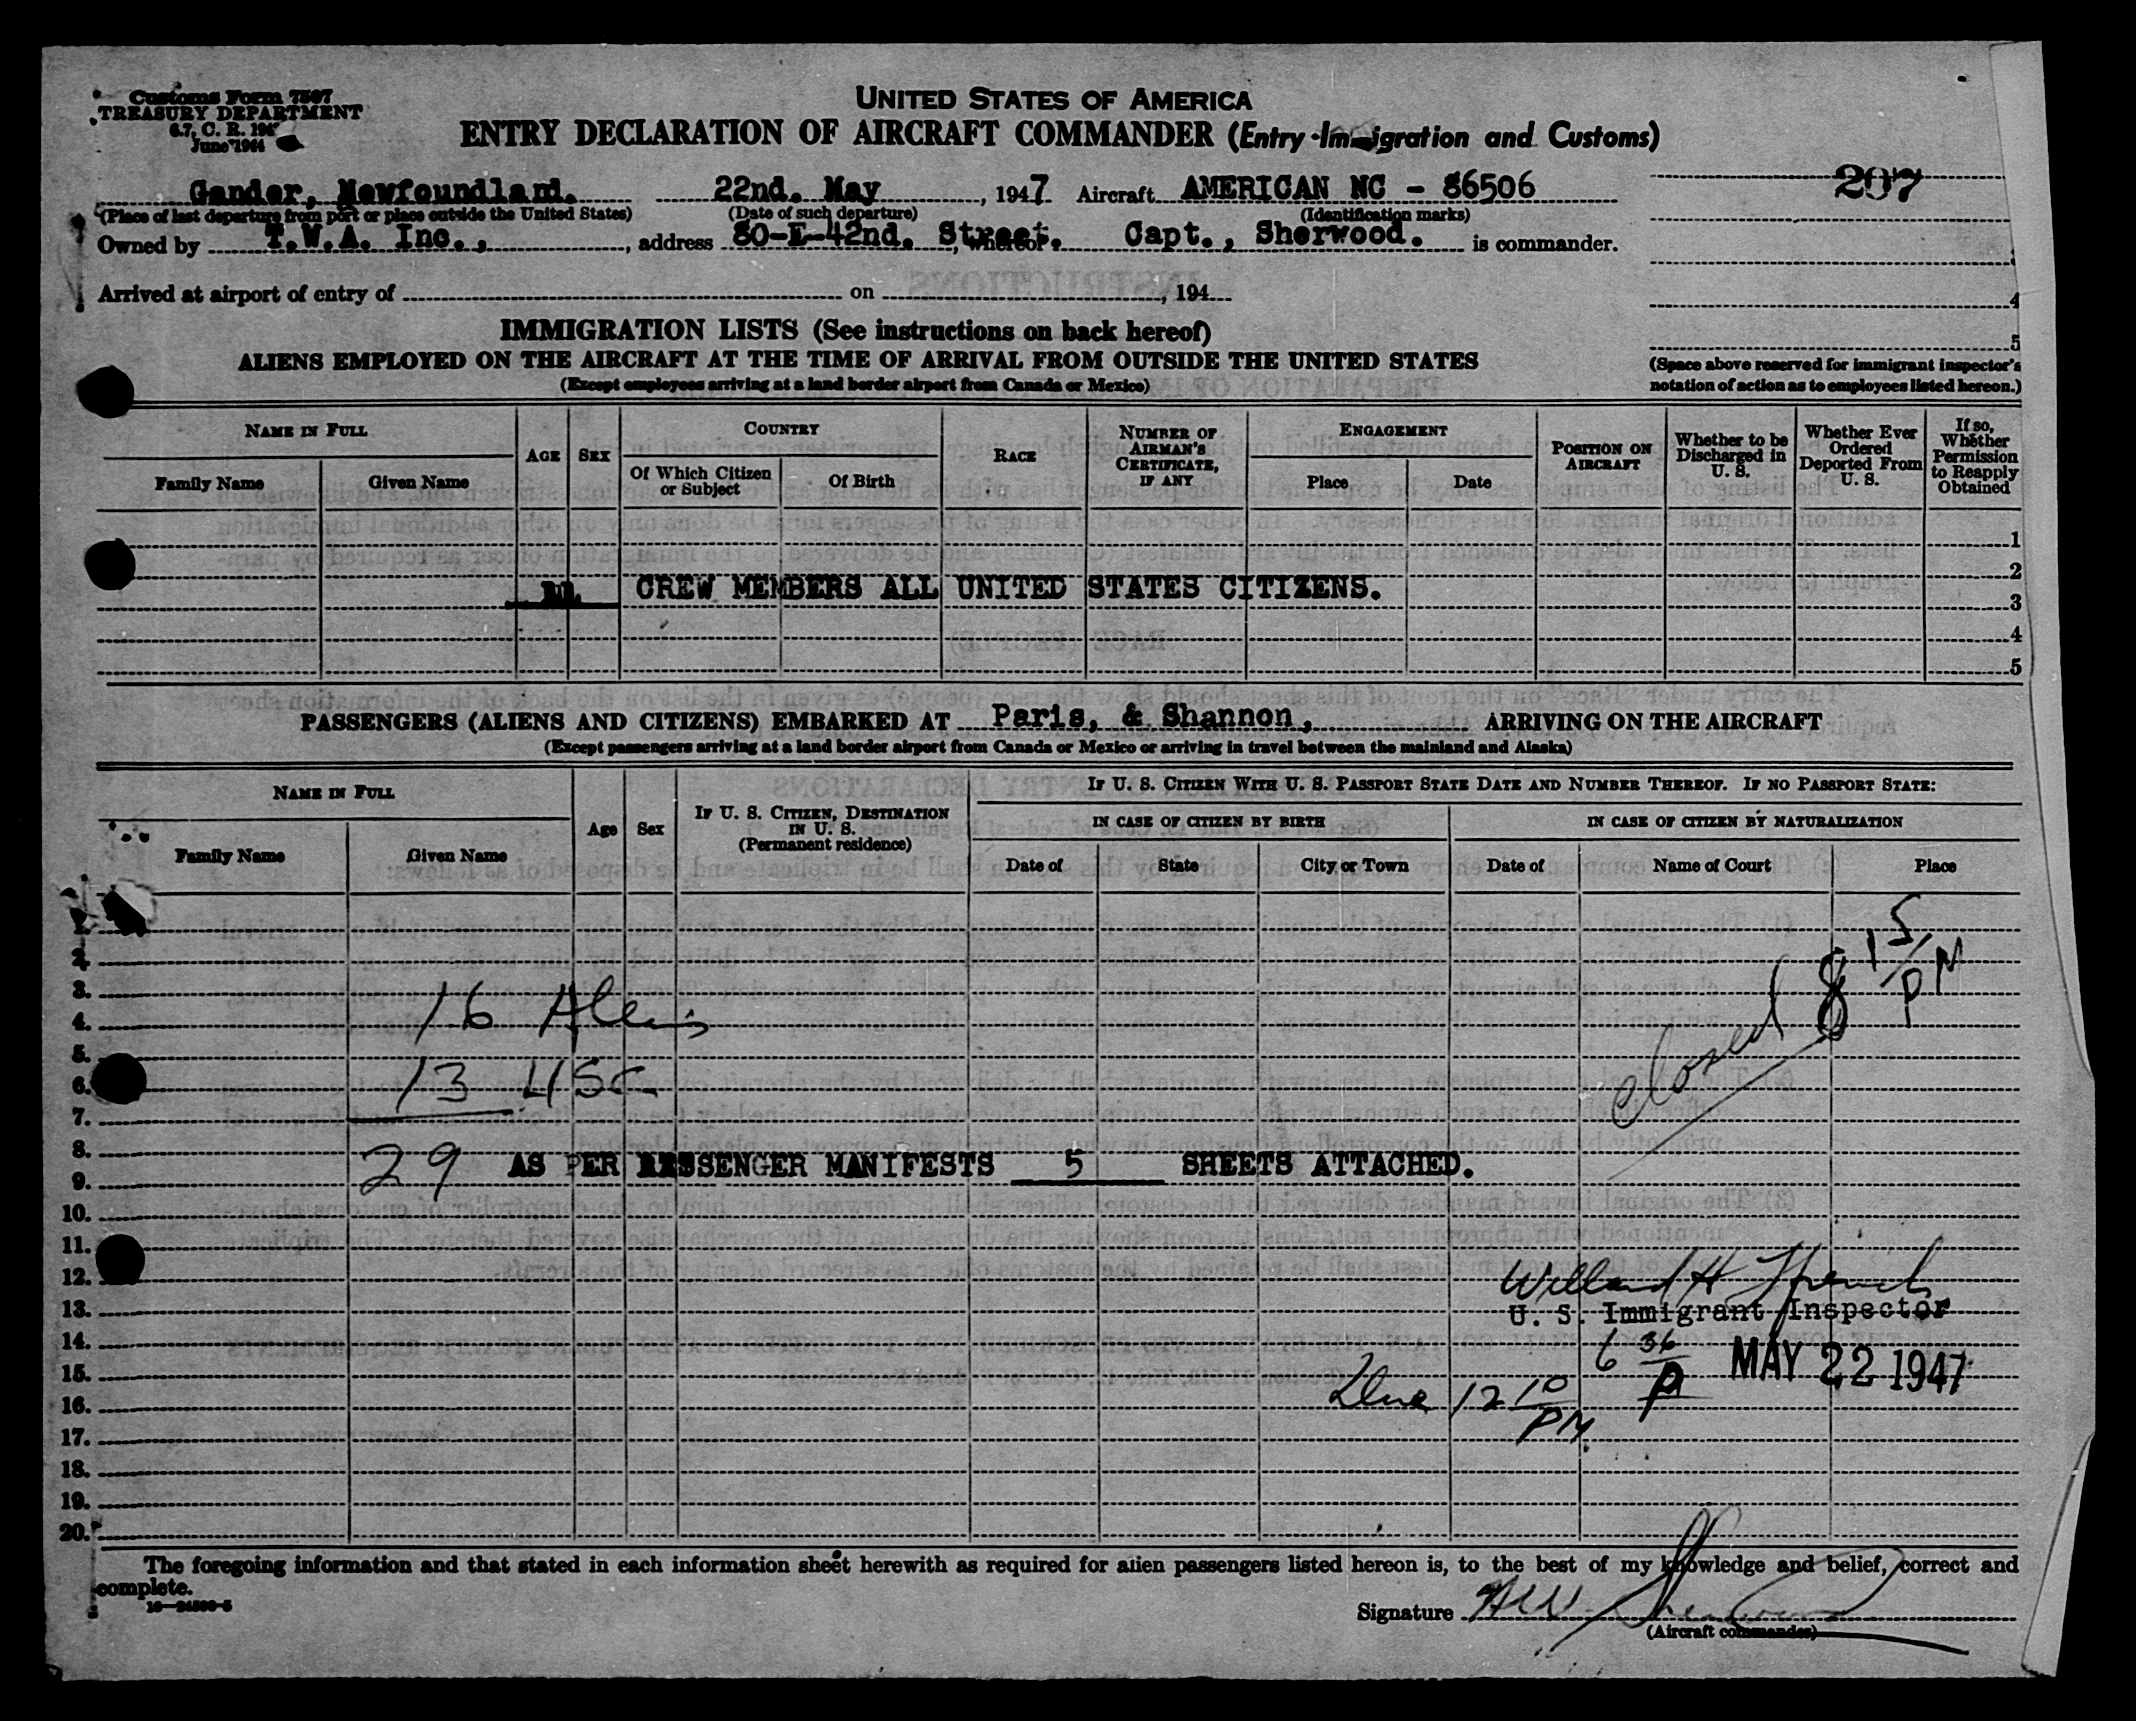 Customs Form 7507
TREASURY DEPARTMENT
6.7, C. R. 194
June 1944
UNITED STATES OF AMERICA
ENTRY DECLARATION OF AIRCRAFT COMMANDER (Entry-Immigration and Customs)
Gander, Newfoundland. 22nd. May, 1947 Aircraft AMERICAN NC - 86506
207
(Place of last departure from port or place outside the United States) (Date of such departure) (Identification marks)
Owned by T.W.A. Inc., , address 80-E-42nd. Street. , whereof Capt., Sherwood. is commander.
Arrived at airport of entry of on , 194
4
5
IMMIGRATION LISTS (See instructions on back hereof)
ALIENS EMPLOYED ON THE AIRCRAFT AT THE TIME OF ARRIVAL FROM OUTSIDE THE UNITED STATES
(Except employees arriving at a land border airport from Canada or Mexico)
(Space above reserved for immigrant inspector's
notation of action as to employees listed hereon.)
NAME IN FULL
Family Name Given Name
AGE
SEX
COUNTRY
Of Which Citizen or Subject
Of Birth
RACE
NUMBER OF AIRMAN'S CERTIFICATE, IF ANY
ENGAGEMENT
Place Date
POSITION ON AIRCRAFT
Whether to be Discharged in U. S.
Whether Ever Ordered Deported From U. S.
If so, Whether Permission to Reapply Obtained
1
2
CREW MEMBERS ALL UNITED STATES CITIZENS.
3
4
5
PASSENGERS (ALIENS AND CITIZENS) EMBARKED AT Paris, & Shannon, ARRIVING ON THE AIRCRAFT
(Except passengers arriving at a land border airport from Canada or Mexico or arriving in travel between the mainland and Alaska)
NAME IN FULL
Family Name Given Name
Age
Sex
IF U. S. CITIZEN, DESTINATION IN U. S.
(Permanent residence)
IF U. S. CITIZEN WITH U. S. PASSPORT STATE DATE AND NUMBER THEREOF. IF NO PASSPORT STATE:
IN CASE OF CITIZEN BY BIRTH
IN CASE OF CITIZEN BY NATURALIZATION
Date of State City or Town Date of Name of Court Place
1.
2.
3.
4. 16 Aliens
closed 8 15/PM
5.
6. 13 USC
7.
8.
29 AS PER PASSENGER MANIFESTS 5 SHEETS ATTACHED.
9.
10.
11.
12.
Willard H French
13. U. S. Immigrant Inspector
14.
6 36/P MAY 22 1947
15.
16. Due 12 10/PM
17.
18.
19.
20.
The foregoing information and that stated in each information sheet herewith as required for alien passengers listed hereon is, to the best of my knowledge and belief, correct and
complete.
Signature Sherwood
(Aircraft commander)